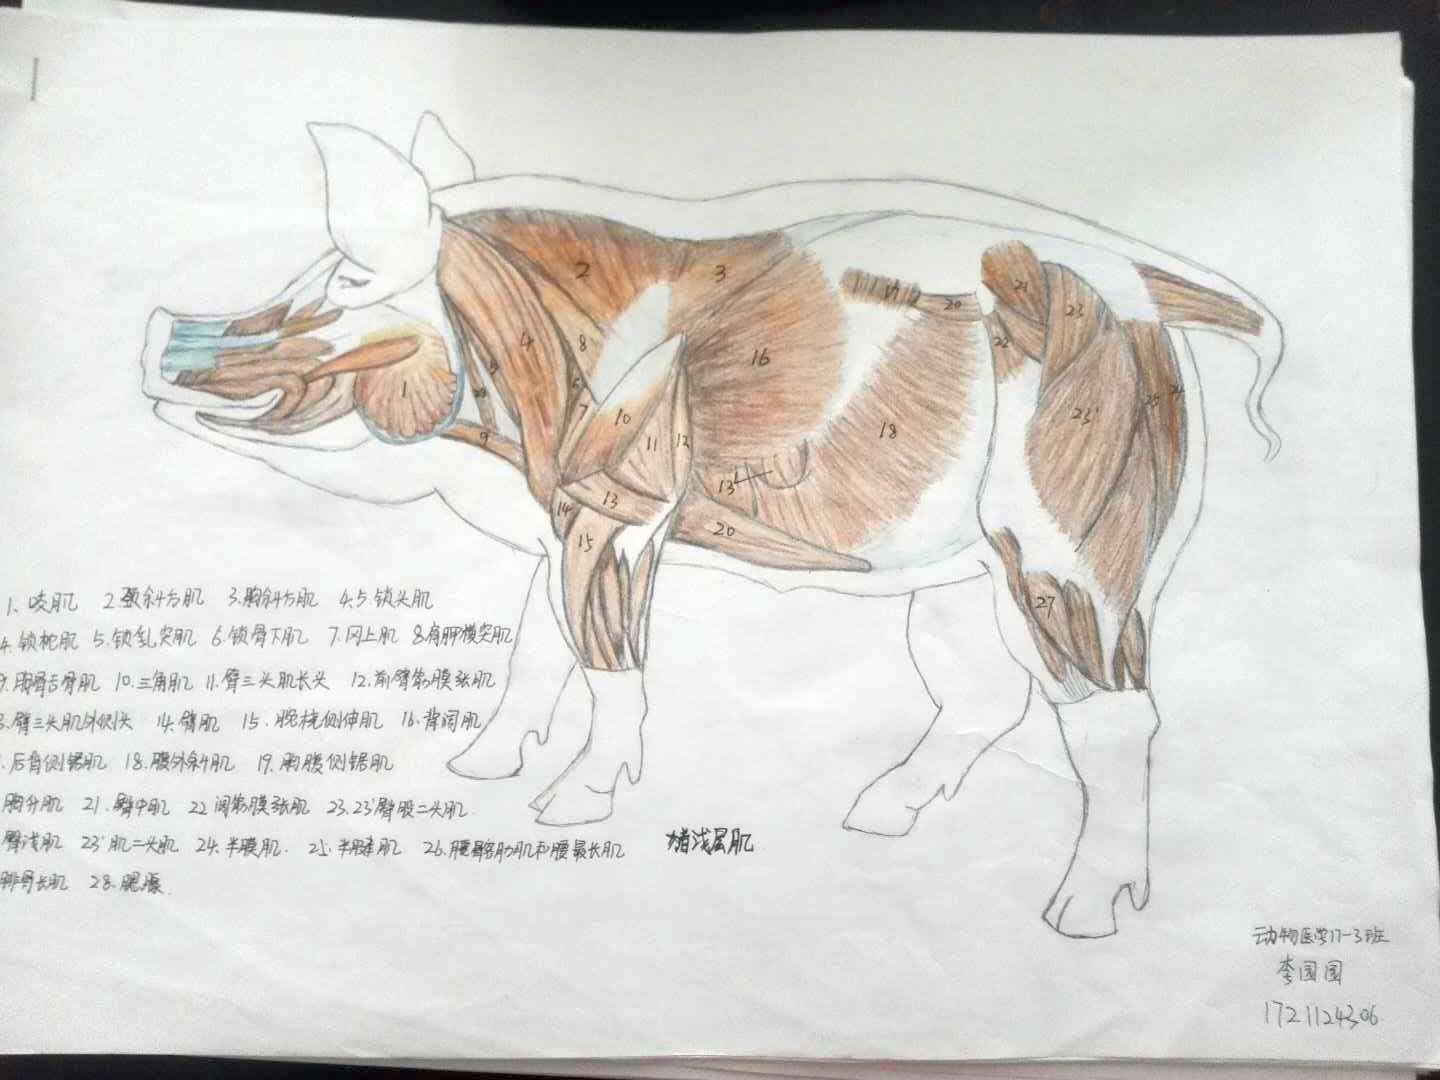 1. 咬肌 2. 颈斜方肌 3. 胸斜方肌 4.5 锁头肌
4. 锁枕肌 5. 锁乳突肌 6. 锁骨下肌 7. 冈上肌 8. 肩胛横突肌
9. 胸骨舌骨肌 10. 三角肌 11. 臂三头肌长头 12. 前臂筋膜张肌
3. 臂三头肌外侧头 14. 臂肌 15. 腕桡侧伸肌 16. 背阔肌
后背侧锯肌 18. 腹外斜肌 19. 胸腹侧锯肌
胸升肌 21. 臀中肌 22 阔筋膜张肌 23. 23' 臀股二头肌
臀浅肌 23' 肌二头肌 24. 半膜肌. 25. 半腱肌 26. 腰髂肋肌和腰最长肌
腓骨长肌 28. 腮腺
猪浅层肌
动物医学17-3班
李园园
1721124306
1
2
3
4
5
8
6
7
9
10
11
12
13
14
15
16
13
18
20
20
21
22
23
23'
25
24
27
28